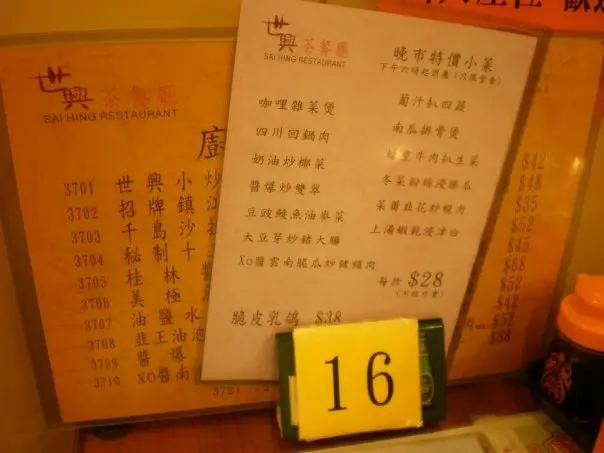 世興 茶餐廳
SAI HING RESTAURANT
晚市特價小菜
咖哩雜菜煲
四川回鍋肉
奶油炒椰菜
醬爆炒雙翠
豆豉鯪魚油麥菜
大豆芽炒豬大腸
XO醬雲南脆瓜炒豬頸肉
葡汁扒四蔬
南瓜排骨煲
牛肉扒生菜
冬菜粉絲浸勝瓜
菜莆韮花炒晚肉
上湯蝦乾浸津白
每款 $28
脆皮乳鴿 $38
16
世興 茶餐廳
SAI HING RESTAURANT
廚
3701 世興小炒
3702 招牌鎮江
3703 千島沙
3704 秘制十
3705 桂林
美極
3707 油鹽水
3708 韮王油泡
3709 醬爆
3710 XO醬南
$42
$48
$35
$52
$45
$68
$52
$42
$52
$38